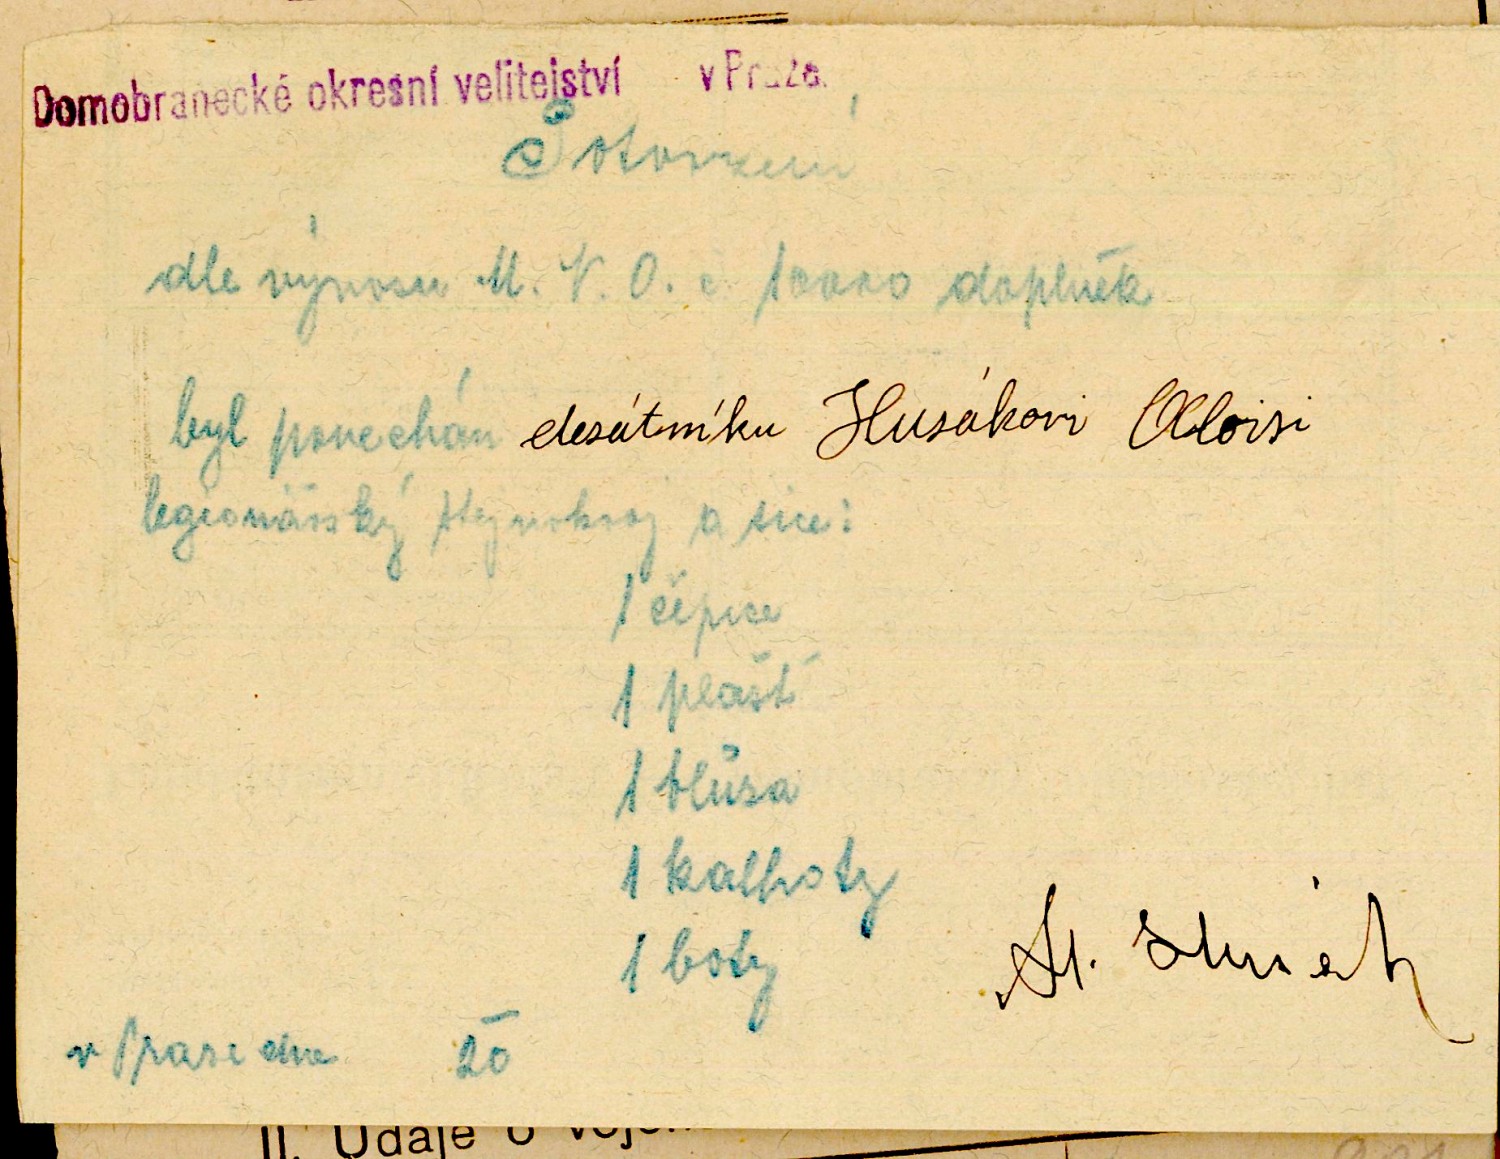 Domobranecké okresní velitelství v Praze.
Potvrzení
dle výnosu M. N. O. č 10000 doplněk
byl ponechán desátníku Husákovi Aloisi
legionářský stejnokroj a sice:
1 čépice
1 plášť
1 blůsa
1 kalhoty
1 boty
St.
v Praze dne 20
II. Údaje o